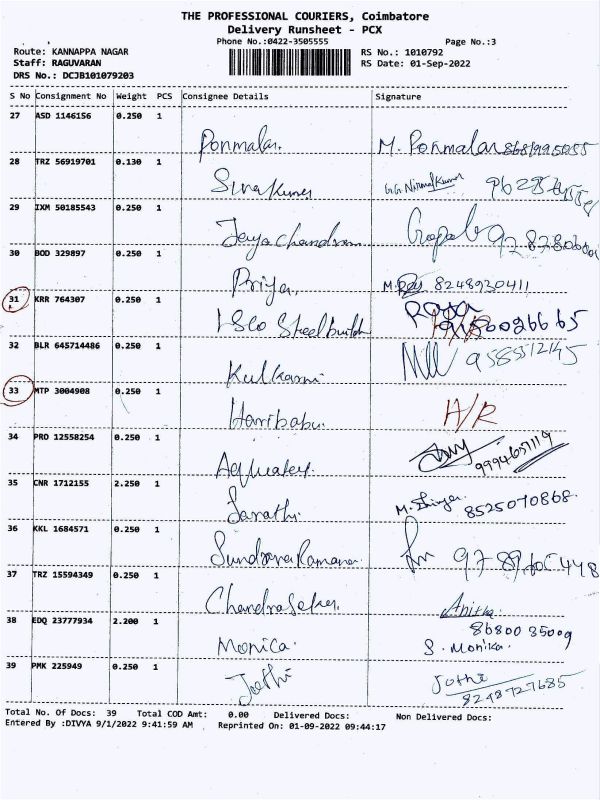 THE PROFESSIONAL COURIERS, Coimbatore
Delivery Runsheet - PCX
Phone No.:0422-3505555 Page No.:3
Route: KANNAPPA NAGAR RS No.: 1010792
Staff: RAGUVARAN RS Date: 01-Sep-2022
DRS No.: DCJB101079203
S No Consignment No Weight PCS Consignee Details Signature
27 ASD 1146156 0.250 1
Ponmalar. M. Ponmalar
28 TRZ 56919701 0.130 1
Sivakumar
29 IXM 50185543 0.250 1
Jeyachandran Gopal
30 BOD 329897 0.250 1
Priya. 8248930411
31 KRR 764307 0.250 1
Steel
32 BLR 645714486 0.250 1
Kulkarni
33 MTP 3004908 0.250 1
Haribabu. H/R
34 PRD 12558254 0.250 1
9994657119
35 CNR 1712155 2.250 1
Sarathi. 8525070868
36 KKL 1684571 0.250 1
37 TRZ 15594349 0.250 1
Chandrasekar. Anitha
38 EDQ 23777934 2.200 1 8680035009
Monica. S. Monika.
39 PMK 225949 0.250 1
Jothi Jothi
8248727685
Total No. Of Docs: 39 Total COD Amt: 0.00 Delivered Docs: Non Delivered Docs:
Entered By :DIVYA 9/1/2022 9:41:59 AM Reprinted On: 01-09-2022 09:44:17